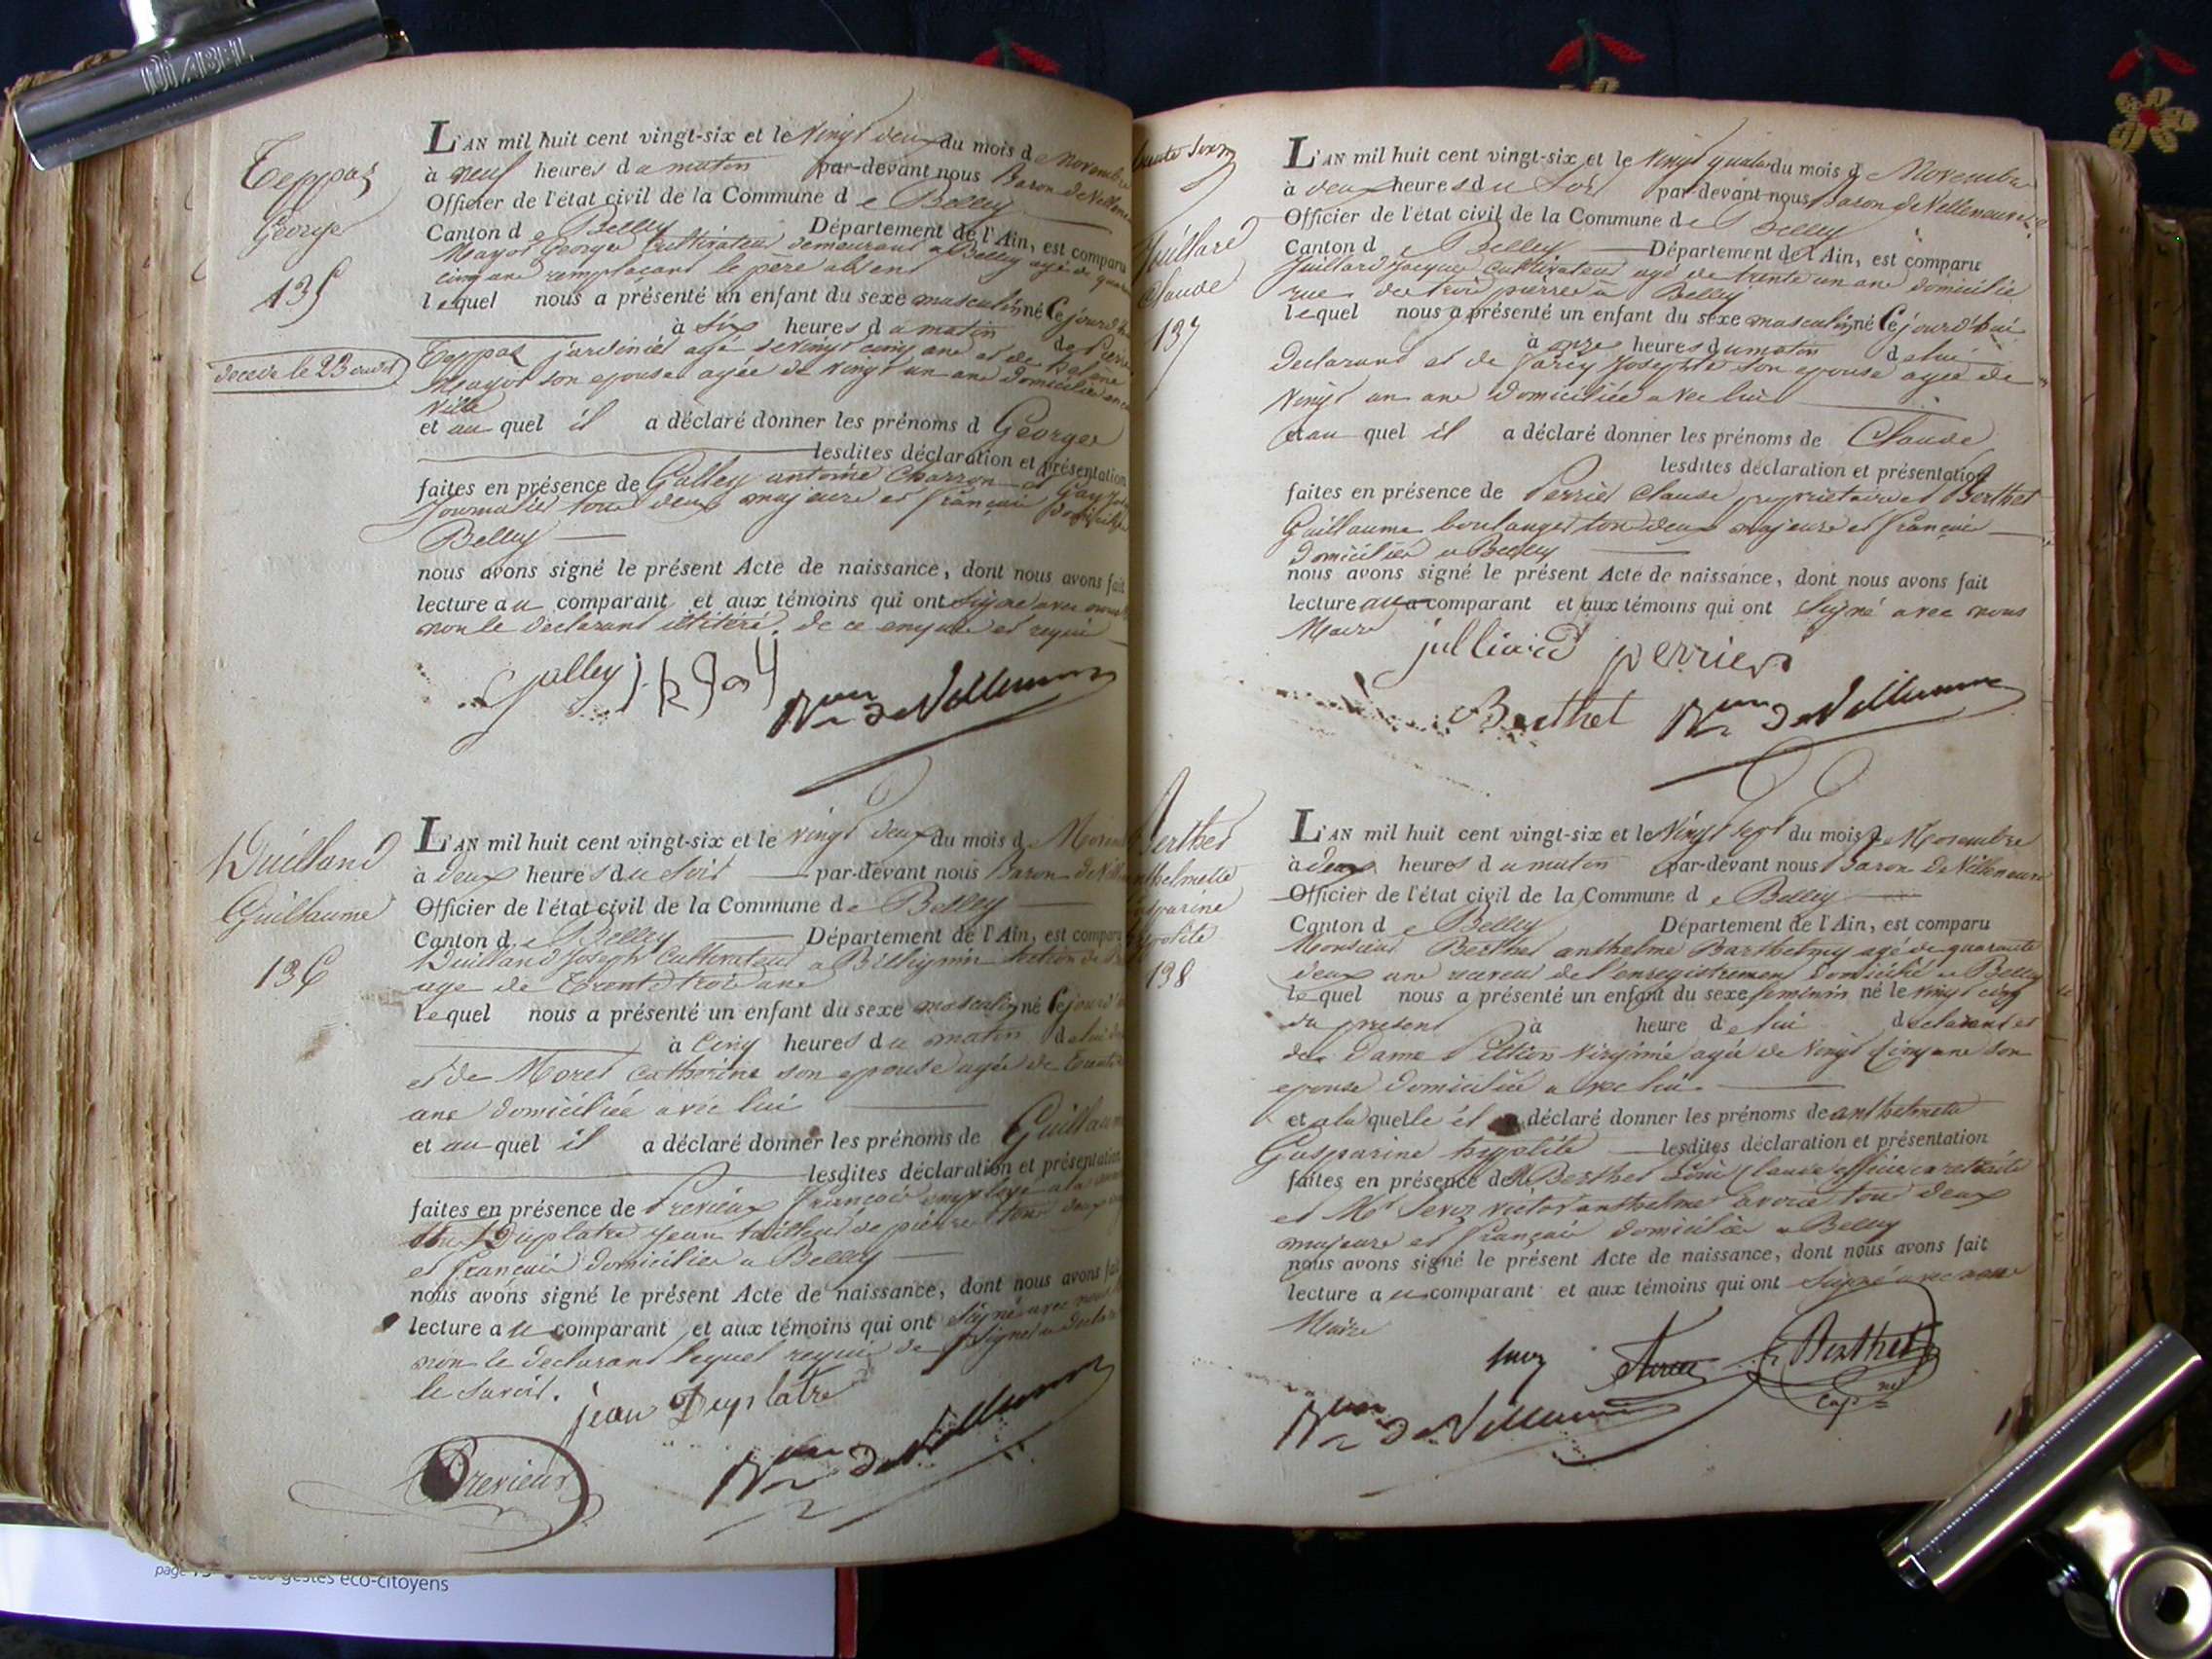 Teppaz
George
135
décédé le 23
L'AN mil huit cent vingt-six et le vingt deux du mois de Novembre
à neuf heures du matin par-devant nous Baron de Villeneuve
Officier de l'état civil de la Commune de Belley
Canton de Belley Département de l'Ain, est comparu
Mayot George Cultivateur demeurant a Belley agé de
cinq ans remplaçant le père absent
lequel nous a présenté un enfant du sexe masculin né Cejourd'hui
à six heures du matin de Pierre
Teppaz jardinier agé de vingt cinq ans et de
Mayot son epouse agée de vingt un ans domiciliés en
ville
et au quel il a déclaré donner les prénoms d George
lesdites déclaration et présentation
faites en présence de Galley antoine Charron et Gay
Journalier tous deux majeurs et français
Belley
nous avons signé le présent Acte de naissance, dont nous avons fait
lecture au comparant et aux témoins qui ont signé avec nous
non le declarant de ce enquis et requis
Galley
Bon de Villeneuve
Duilland
Guillaume
136
L'AN mil huit cent vingt-six et le vingt deux du mois de Novembre
à deux heures du soir par-devant nous Baron de
Officier de l'état civil de la Commune de Belley
Canton de Belley Département de l'Ain, est comparu
Duilland Joseph Cultivateur a Billignin section de
agé de trente trois ans
lequel nous a présenté un enfant du sexe masculin né Cejourd'hui
à cinq heures du matin de lui
et de Moret Catherine son epouse agée de trente
ans domiciliée avec lui
et au quel il a déclaré donner les prénoms de Guillaume
lesdites déclaration et présentation
faites en présence de Previeux François employé a la
Duplatre Jean tailleur de pierre tous deux
et français domiciliés a Belley
nous avons signé le présent Acte de naissance, dont nous avons fait
lecture au comparant et aux témoins qui ont signé avec nous
non le declarant lequel requis de signer a declaré
le savoir.
jean Duplatre
Previeux
Bon de Villeneuve
Juillard
Claude
137
L'AN mil huit cent vingt-six et le vingt quatre du mois de Novembre
à deux heures du soir par-devant nous Baron de Villeneuve
Officier de l'état civil de la Commune de Belley
Canton de Belley Département de l'Ain, est comparu
Juillard Jacque Cultivateur agé de trente un ans domicilié
rue des trois pierres a Belley
lequel nous a présenté un enfant du sexe masculin né Cejourd'hui
à onze heures du matin de lui
declarant et de Josephte son epouse agée de
vingt un ans domiciliée avec lui
et au quel il a déclaré donner les prénoms de Claude
lesdites déclaration et présentation
faites en présence de Perrier Claude propriétaire et Berthet
Guillaume boulanger tous deux majeurs et français
domiciliés a Belley
nous avons signé le présent Acte de naissance, dont nous avons fait
lecture au comparant et aux témoins qui ont signé avec nous
Maire
julliard perrier
Berthet Bon de Villeneuve
Berthet
anthelmette
Gasparine
hypolite
138
L'AN mil huit cent vingt-six et le vingt sept du mois de Novembre
à deux heures du matin par-devant nous Baron de Villeneuve
Officier de l'état civil de la Commune de Belley
Canton de Belley Département de l'Ain, est comparu
Monsieur Berthet anthelme Barthelmy agé de quarante
deux ans receveur de l'enregistrement domicilié a Belley
lequel nous a présenté un enfant du sexe feminin né le vingt cinq
du present à heure de lui declarant et
de Dame Virginie agée de vingt cinq ans son
epouse domiciliée avec lui
et a la quelle il a déclaré donner les prénoms de anthelmette
Gasparine hypolite lesdites déclaration et présentation
faites en présence de M Berthet Loui Claude officier en retraite
et Mr victor anthelme avoué tous deux
majeurs et français domiciliés a Belley
nous avons signé le présent Acte de naissance, dont nous avons fait
lecture au comparant et aux témoins qui ont signé avec nous
Maire
Berthet
Bon de Villeneuve
page éco-citoyens